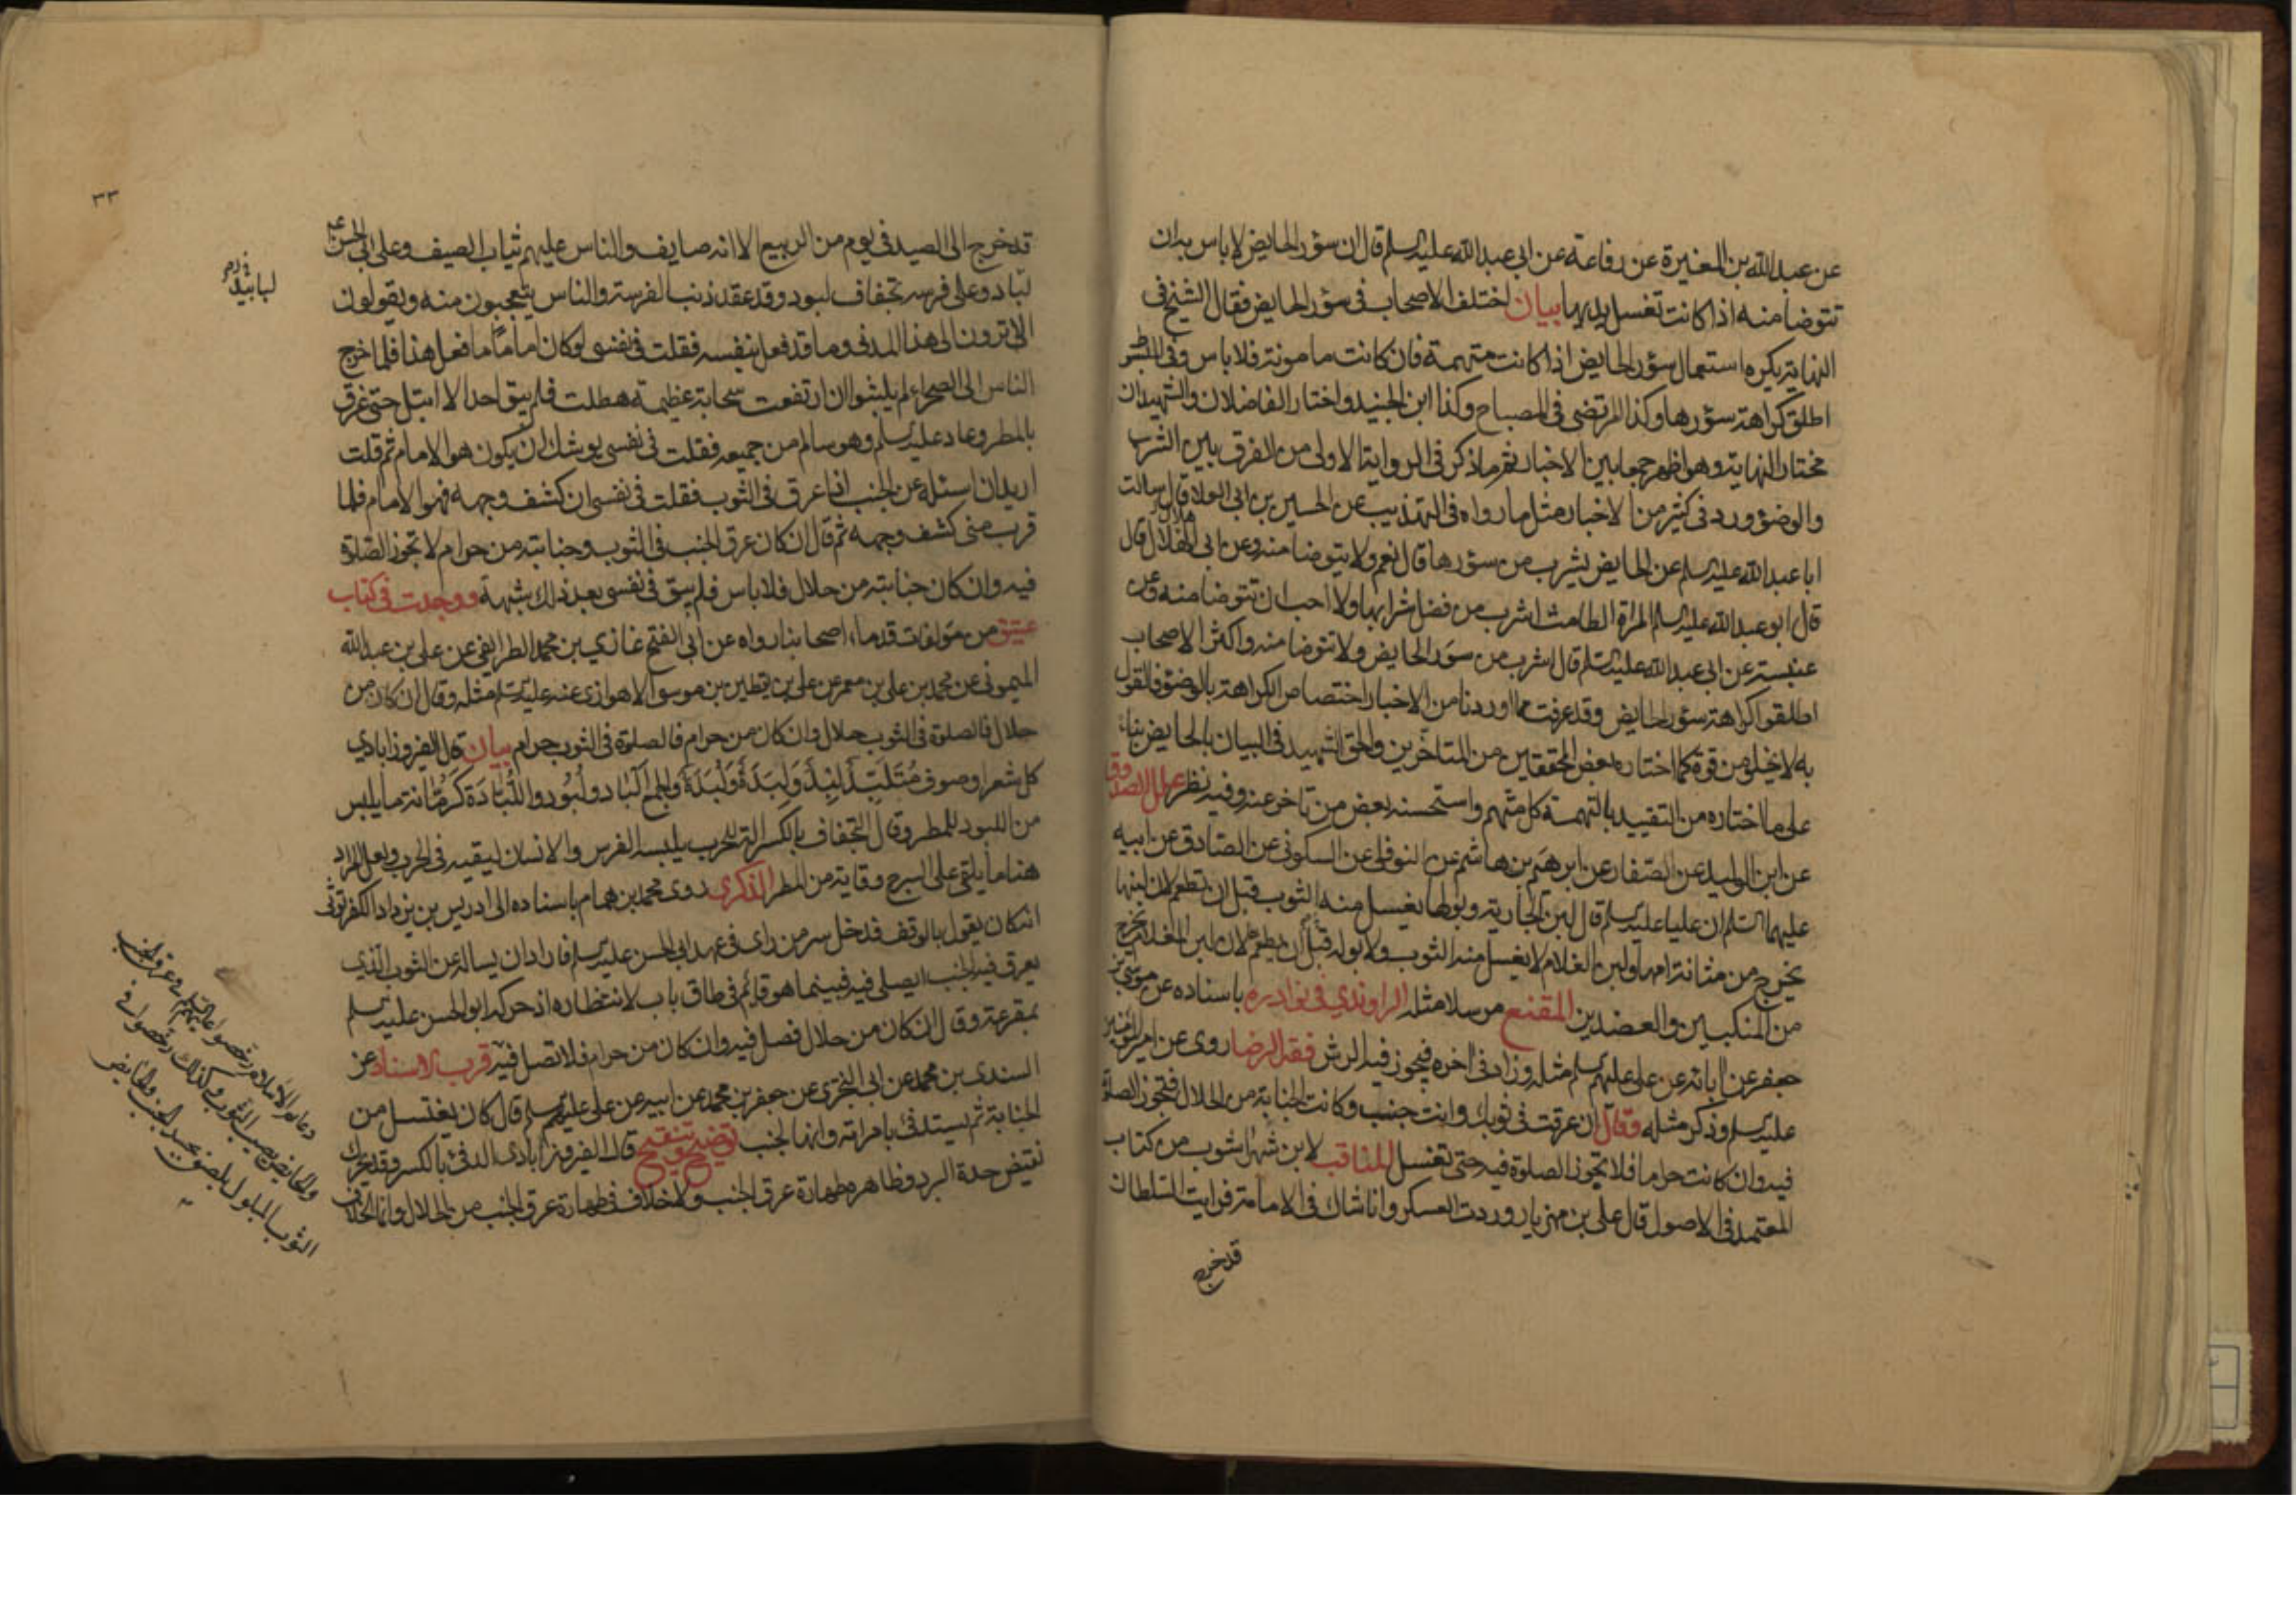 عن عبدالله بن المغيرة عن رفاعة عن ابى عبدالله عليه السلم قال ان سؤر الحايض لا باس به ان
تتوضا منه اذا كانت تغسل يديها بيان اختلف الاصحاب فى سؤر الحايض فقال الشيخ فى
النهاية يكره استعمال سؤر الحايض اذا كانت متهمة فان كانت مامونة فلا باس وفى المبسوط
اطلق كراهة سؤرها وكذا المرتضى فى المصباح وكذا ابن الجنيد واختار الفاضلان والشهيدان
مختار النهاية وهو اظهر جمعا بين الاخبار ثم ما ذكر فى الرواية الاولى من الفرق بين الشرب
والوضؤ ورد فى كثير من الاخبار مثل ما رواه فى التهذيب عن الحسين بن ابى العلا قال سالت
ابا عبدالله عليه السلم عن الحايض يشرب من سؤرها قال نعم ولا يتوضا منه وعن ابى هلال قال
قال ابو عبدالله عليه السلم المراة الطامث اشرب من فضل شرابها ولا احب ان تتوضا منه وعن
عنبسة عن ابى عبدالله عليه السلم قال اشرب من سؤر الحايض ولا تتوضا منه واكثر الاصحاب
اطلقوا كراهة سؤر الحايض وقد عرفت مما اوردنا من الاخبار اختصاص الكراهة بالوضؤ فالقول
به لا يخلو من قوة كما اختاره بعض المحققين من المتاخرين والحق الشهيد فى البيان بالحايض بناء
على ما اختاره من التقييد بالتهمة كل متهم واستحسنه بعض من تاخر عنه وفيه نظر علل الصدوق
عن ابن الوليد عن الصفار عن ابرهيم بن هاشم عن النوفلى عن السكونى عن الصادق عن ابيه
عليهما السلم ان عليا عليه السلم قال لبن الجارية وبولها يغسل منه الثوب قبل ان تطعم لان لبنها
يخرج من مثانة امها ولبن الغلام لا يغسل منه الثوب ولا بوله قبل ان يطعم لان لبن الغلام يخرج
من المنكبين والعضدين المقنع مرسلا مثله الراوندي فى نوادره باسناده عن موسى بن
جعفر عن ابائه عن على عليهم السلم مثله وزاد فى اخره فيجوز فيه الرش فقه الرضا روى عن امير المؤمنين
عليه السلم وذكر مثله وقال ان عرقت فى ثوبك وانت جنب وكانت الجنابة من الحلال فتجوز الصلوة
فيه وان كانت حراما فلا تجوز الصلوة فيه حتى تغسل المناقب لابن شهراشوب من كتاب
المعتمد فى الاصول قال على بن مهزيار وردت العسكر وانا شاك فى الامامة فرايت السلطان
قد خرج
٣٣
قد خرج الى الصيد فى يوم من الربيع الا انه صايف والناس عليهم ثياب الصيف وعلى ابى الحسن ع
لباد وعلى فرسه تجفاف لبود وقد عقد ذنب الفرسة والناس يتعجبون منه ويقولون
لبابيد
الا ترون الى هذا المدنى وما قد فعل بنفسه فقلت فى نفسى لو كان اماما ما فعل هذا فلما خرج
الناس الى الصحراء لم يلبثوا ان ارتفعت سحابة عظيمة هطلت فلم يبق احد الا ابتل حتى غرق
بالمطر وعاد عليه السلم وهو سالم من جميعه فقلت فى نفسى يوشك ان يكون هو الامام ثم قلت
اريد ان اسئله عن الجنب اذا عرق فى الثوب فقلت فى نفسى ان كشف وجهه فهو الامام فلما
قرب منى كشف وجهه ثم قال ان كان عرق الجنب فى الثوب وجنابته من حرام لا تجوز الصلوة
فيه وان كان جنابته من حلال فلا باس فلم يبق فى نفسى بعد ذلك شبهة ووجدت فى كتاب
عتيق من مؤلفات قدماء اصحابنا رواه عن ابى الفتح غازي بن محمد الطرايفى عن على بن عبدالله
الميمونى عن محمد بن على بن معمر عن على بن يقطين بن موسى الاهوازى عنه عليه السلم مثله وقال ان كان من
حلال فالصلوة فى الثوب حلال وان كان من حرام فالصلوة فى الثوب حرام بيان قال الفيروزابادي
كل شعر او صوف متلبد لبد ولبدة ولبدة والجمع الباد ولبود واللبادة كرمانة ما يلبس
من اللبود للمطر وقال التجفاف بالكسر الة للحرب يلبسه الفرس والانسان ليقيه فى الحرب ولعل المراد
هنا ما يلقى على السرج وقاية من المطر الذكرى روى محمد بن همام باسناده الى ادريس بن يزداد الكفرتوثى
انه كان يقول بالوقف فدخل سر من راى فى عهد ابى الحسن عليه السلم فاراد ان يساله عن الثوب الذي
يعرق فيه الجنب ايصلى فيه فبينما هو قائم فى طاق باب لانتظاره اذ حركه ابو الحسن عليه السلم
بمقرعة وقال ان كان من حلال فصل فيه وان كان من حرام فلا تصل فيه قرب الاسناد عن
السندى بن محمد عن ابى البخترى عن جعفر بن محمد عن ابيه عن على عليهم السلم قال كان يغتسل من
الجنابة ثم يستدفئ بامراته وانها لجنب توضيح وتنقيح قال الفيروزابادى الدفئ بالكسر وقد يحرك
نقيض حدة البرد وظاهره طهارة عرق الجنب ولا خلاف فى طهارة عرق الجنب من الحلال وانما الخلاف
دعائم الاسلام رخصوا عليهم السلم فى عرق الجنب
والحايض يصيب الثوب وكذلك رخصوا فى
الثوب المبلول يلصق بجسد الجنب والحايض